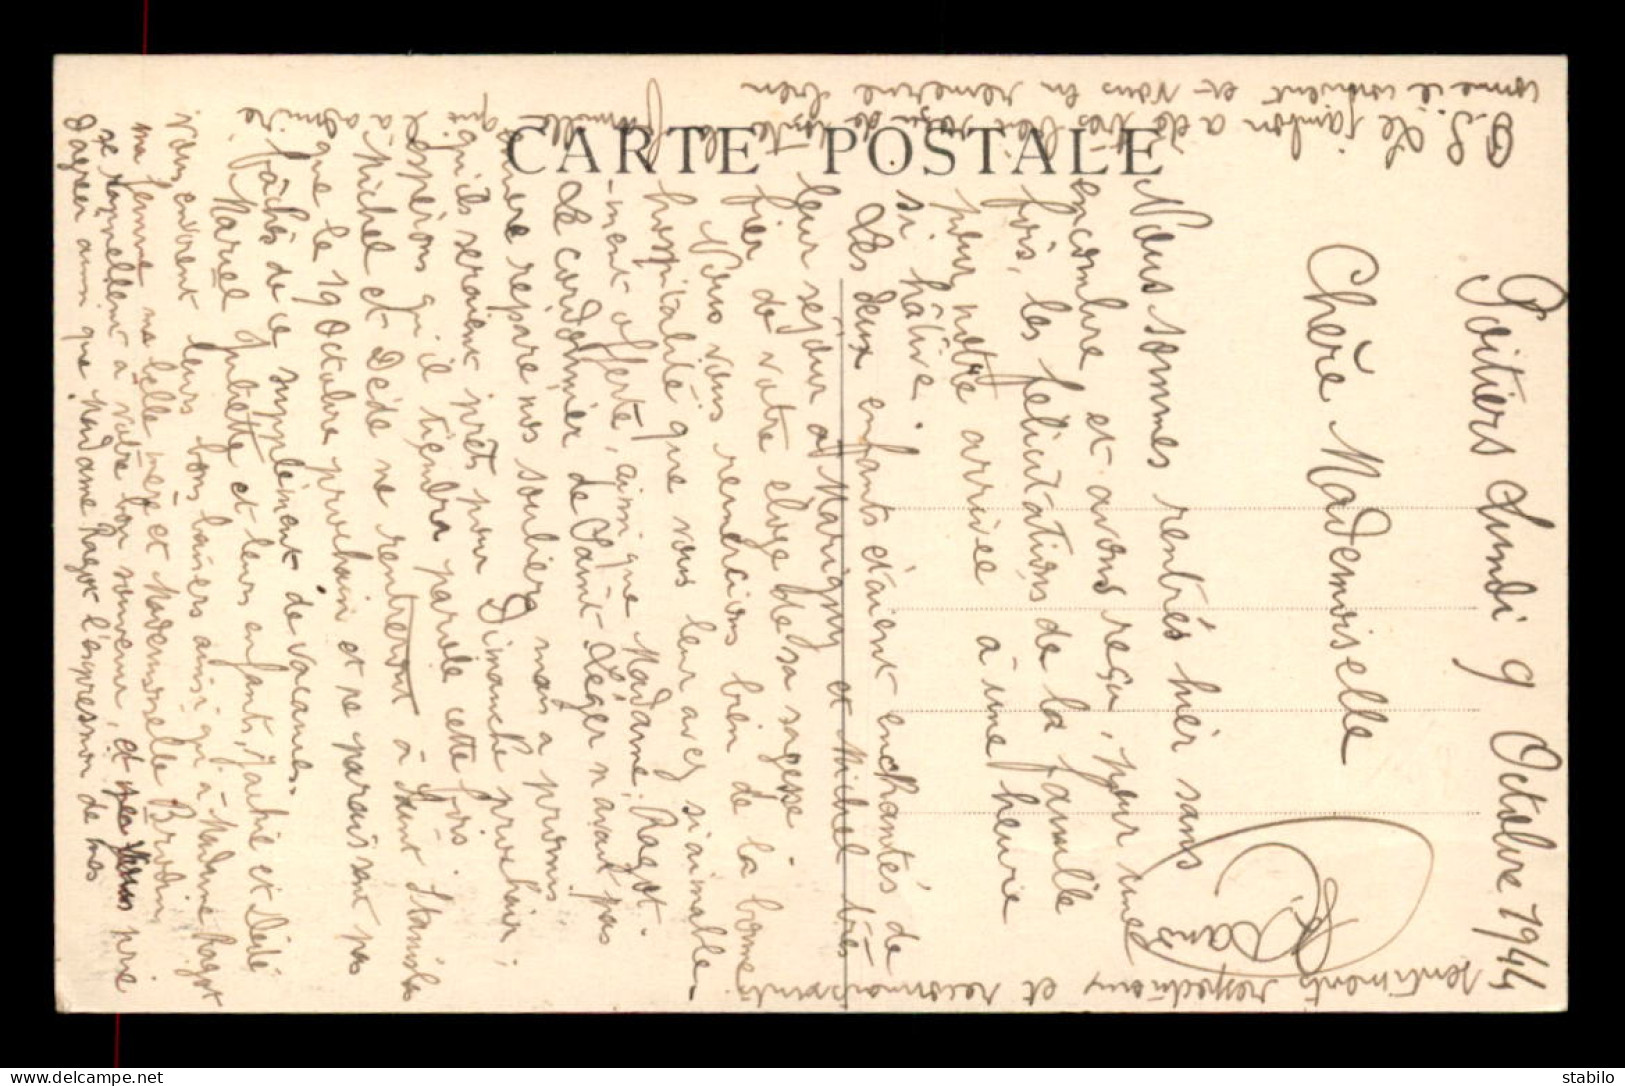 CARTE POSTALE
Poitiers Lundi 9 Octobre 1944
Chère Mademoiselle
Nous sommes rentrés hier sans
encombre et avons reçu, pour une
fois, les félicitations de la famille
pour notre arrivée à une heure
si hâtive.
Les deux enfants étaient enchantés de
leur séjour à Marigny et Michel très
fier de votre éloge de sa sagesse
Nous vous remercions bien de la bonne
hospitalité que vous leur avez si aimable-
-ment offerte, ainsi que Madame Ragot.
Le cordonnier de Saint Léger n'avait pas
encore réparé nos souliers mais a promis
qu'ils seraient prêts pour Dimanche prochain ;
espérons qu'il tiendra parole cette fois
Michel et Dédé ne rentreront à Saint Stanislas
que le 19 Octobre prochain et ne paraissent pas
fâchés de ce supplément de vacances.
Marcel Juliette et leurs enfants, Jackie et Dédé
vous envoient leurs bons baisers ainsi qu'à Madame Ragot
ma femme ma belle mère et Mademoiselle Brodin
se rappellent à votre bon souvenir, et vous prie
d'agréer ainsi que Madame Ragot l'expression de mes
sentiments respectueux et reconnaissants.
P.S. Le jambon a été très bien reçu de toute la famille que l'a admiré
comme il convient et vous en remercie bien